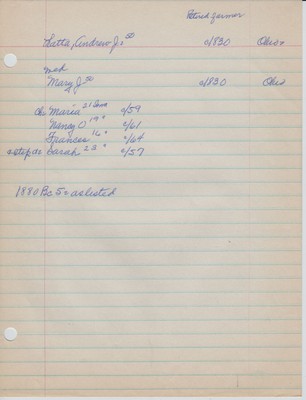 Retired farmer
Latta, Andrew J. 50 c/1830 Ohio
md
Mary J 50 c/1830 Ohio
ch Maria 21 c/59
Nancy O 19 c/61
Frances 16 c/64
step da Sarah 23 c/57
1880 Bc 5 as listed